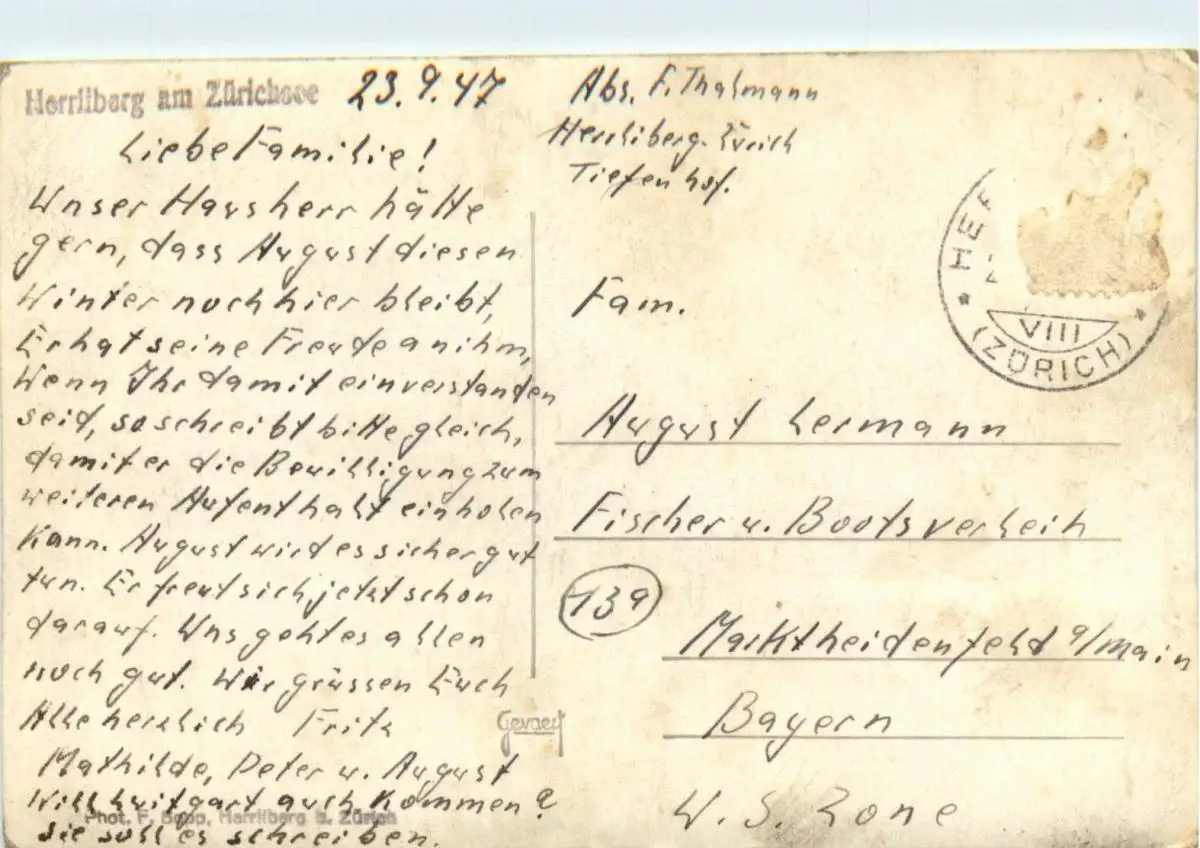 Herrliberg am Zürichsee 23.9.47
Liebe Familie!
Unser Hausherr hätte
gern, dass August diesen
Winter noch hier bleibt,
Er hat seine Freude an ihm,
Wenn Ihr damit einverstanden
seid, so schreibt bitte gleich,
damit er die Bewilligung zum
weiteren Aufenthalt einholen
kann. August wird es sicher gut
tun. Er freut sich jetzt schon
darauf. Uns geht es allen
noch gut. Wir grüssen Euch
Alle herzlich Fritz
Mathilde, Peter u. August
Will Luitgart auch kommen?
sie soll es schreiben.
Phot. F. Bopp, Herrliberg b. Zürich
Gevaert
Abs. F. Thalmann
Herrliberg-Zürich
Tiefenhof.
HER
VIII
(ZÜRICH)
Fam.
August Lermann
Fischer u. Bootsverleih
13a
Marktheidenfeld a/Main
Bayern
W. S. Zone